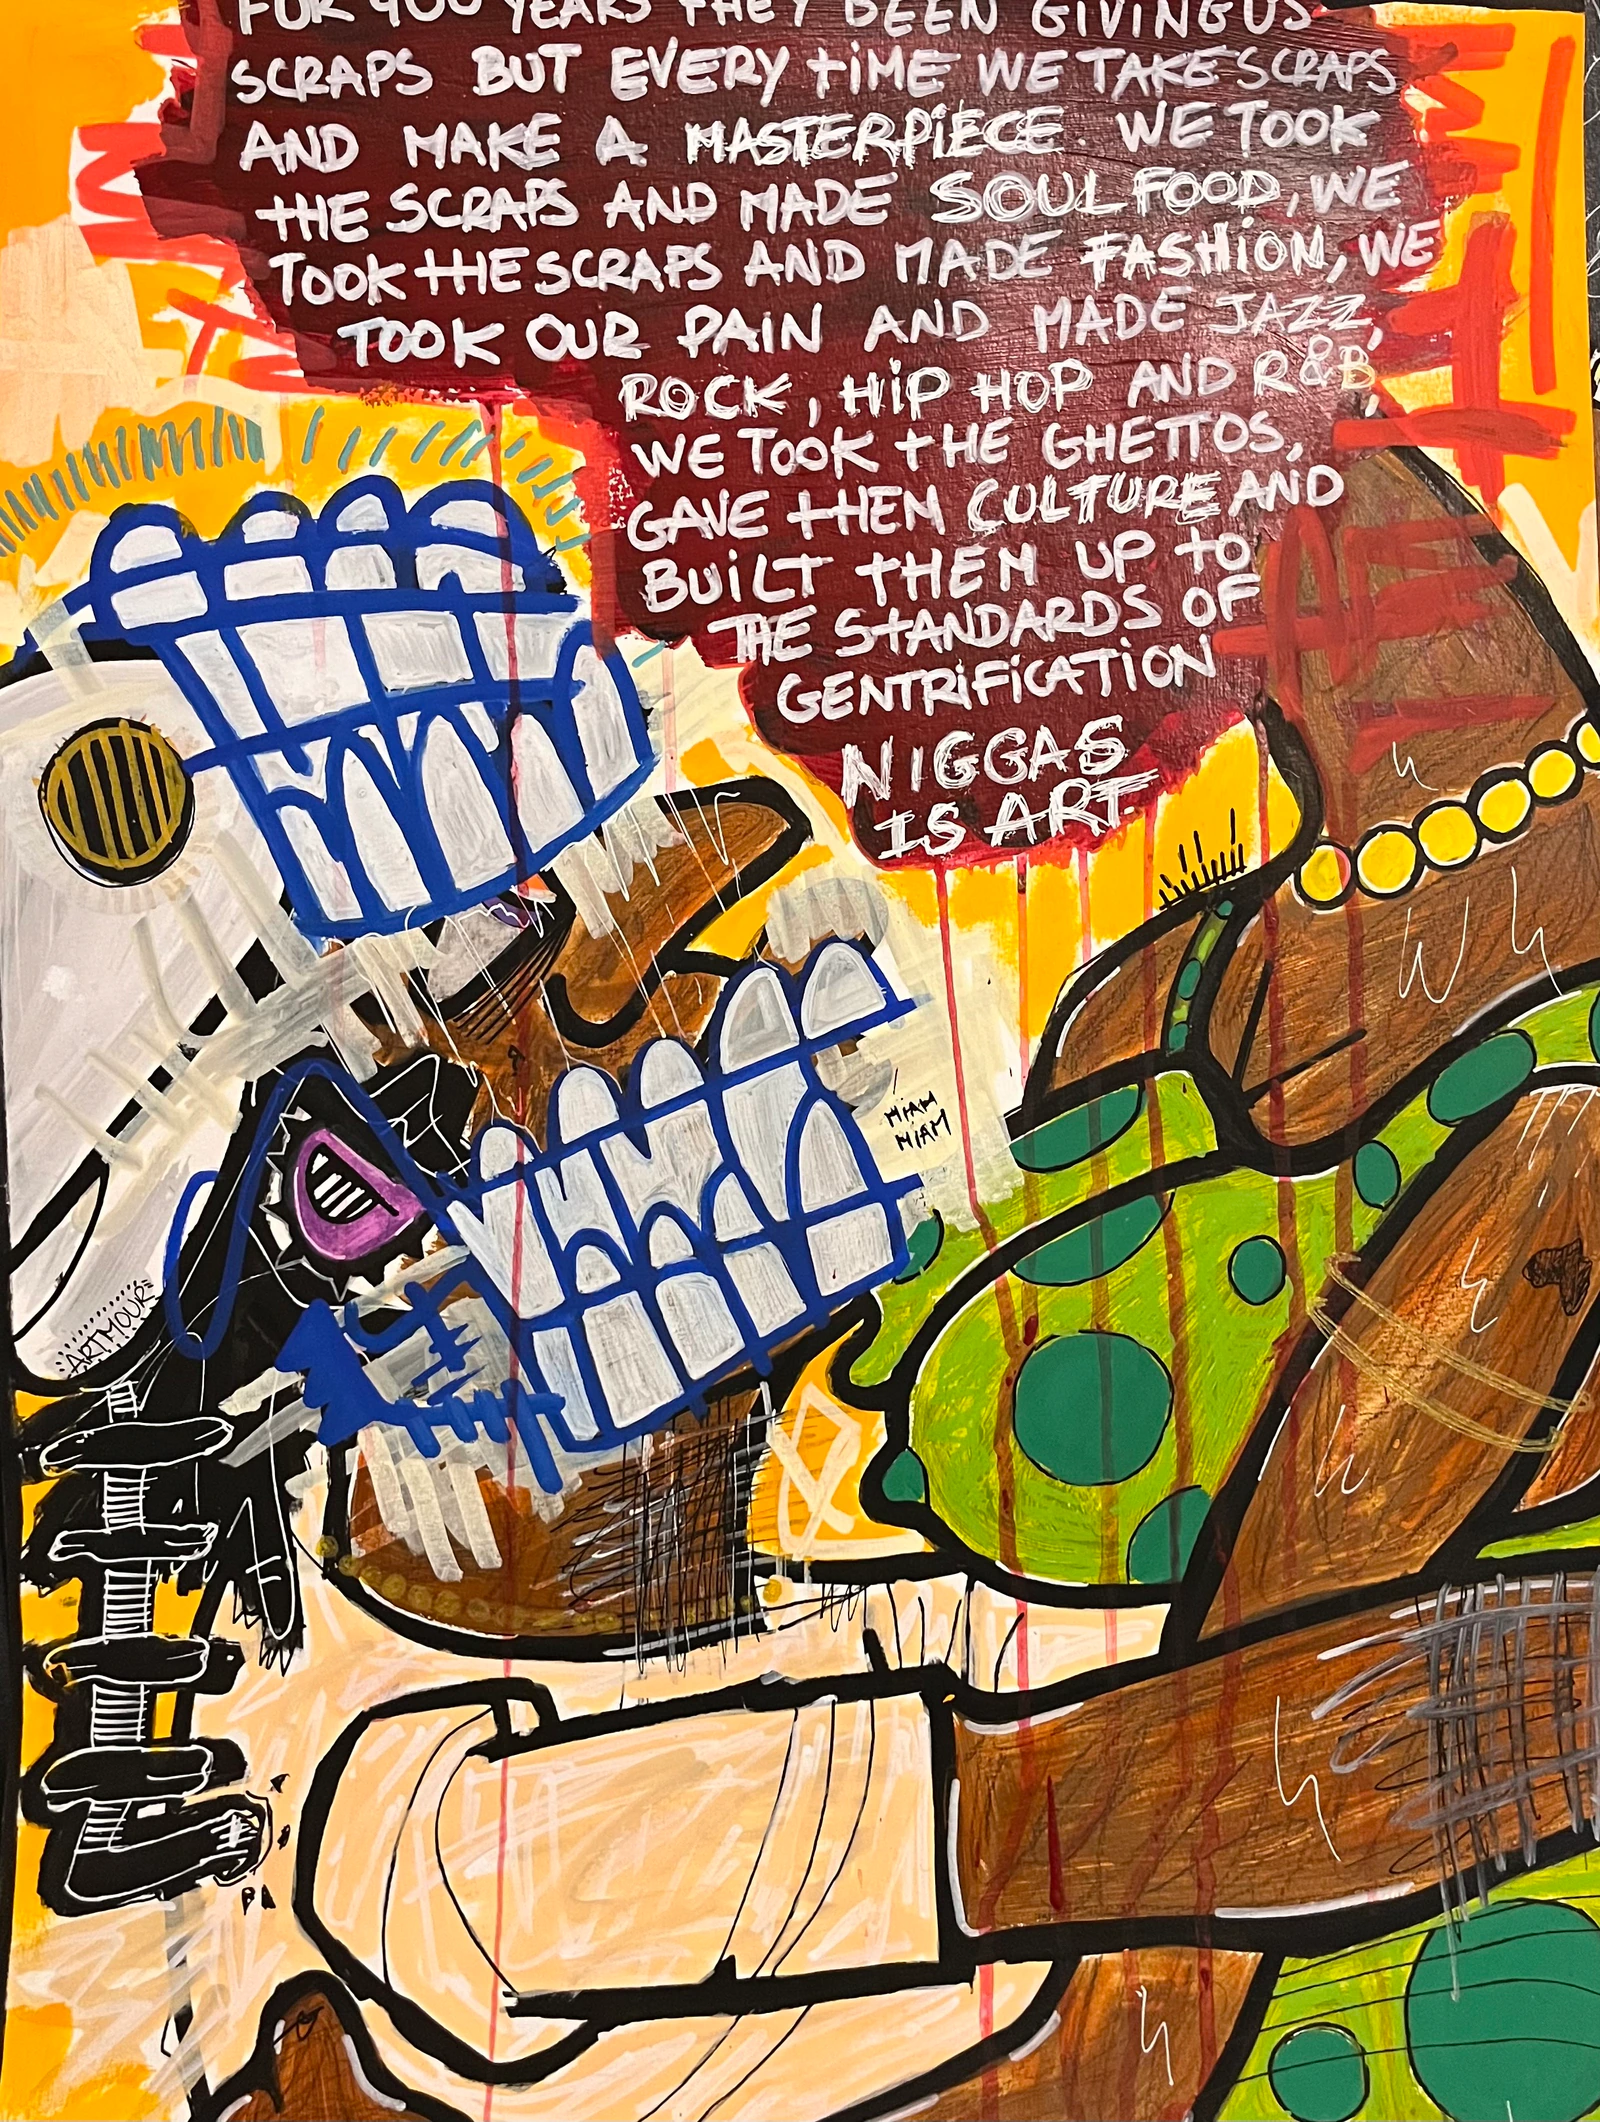 FOR 400 YEARS THEY BEEN GIVING US
SCRAPS BUT EVERY TIME WE TAKE SCRAPS
AND MAKE A MASTERPIECE. WE TOOK
THE SCRAPS AND MADE SOUL FOOD, WE
TOOK THE SCRAPS AND MADE FASHION, WE
TOOK OUR PAIN AND MADE JAZZ,
ROCK, HIP HOP AND R&B,
WE TOOK THE GHETTOS,
GAVE THEM CULTURE AND
BUILT THEM UP TO
THE STANDARDS OF
GENTRIFICATION
NIGGAS
IS ART.
MIAM
MIAM
ARTMOURE